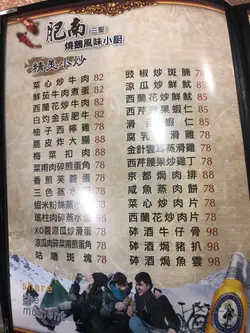 肥南(三聖)
燒鵝風味小廚
精美小炒
菜心炒牛肉 82
鮮茄牛肉煮蛋 82
西蘭花炒牛肉 82
白灼金菇肥牛 82
柚子西檸雞 78
脆皮炸大腸 88
梅菜扣肉 88
菜甫肉碎煎蛋角 78
香煎芙蓉蛋 78
三色蒸水蛋 78
蝦米粉絲蒸水蛋 78
瑤柱肉碎蒸水蛋 98
XO醬涼瓜炒滑蛋 78
涼瓜肉碎菜甫煎蛋角 78
咕嚕斑塊 78
豉椒炒斑腩 78
涼瓜炒鮮魷 85
西蘭花炒鮮魷 85
西芹腰果蝦仁 85
滑蛋蝦仁 85
腐乳蒸滑雞 78
金針雲耳蒸滑雞 78
西芹腰果炒雞丁 78
京都焗肉排 88
咸魚蒸肉餅 78
菜心炒肉片 78
西蘭花炒肉片 78
砵酒焗牛仔骨 98
砵酒焗豬扒 98
砵酒焗魚雲 98
share
the
moment